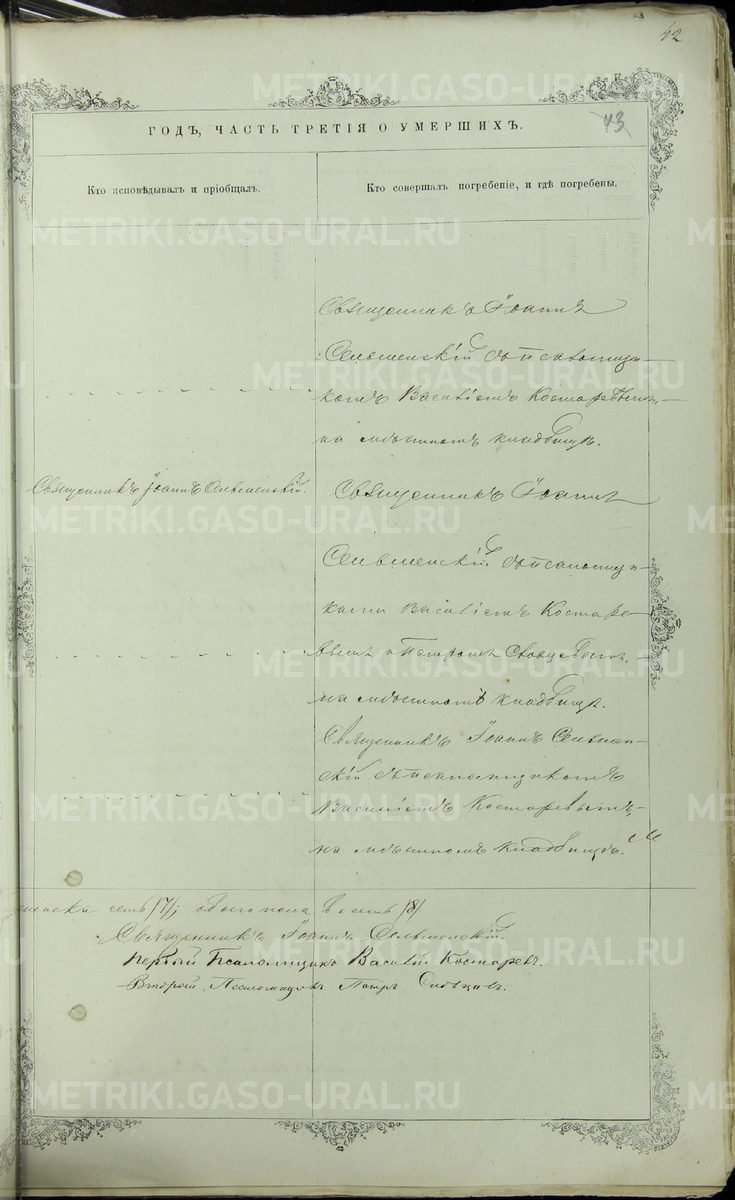 42
43
ГОДЪ, ЧАСТЬ ТРЕТІЯ О УМЕРШИХЪ.
Кто исповѣдывалъ и пріобщалъ.
Кто совершалъ погребеніе, и гдѣ погребены.
Священникъ Іоаннъ
Сельменскій съ псаломщи-
комъ Василіемъ Костаревымъ,
на мѣстномъ кладбищѣ.
Священникъ Іоаннъ Сельменскій.
Священникъ Іоаннъ
Сельменскій съ псаломщи-
ками Василіемъ Костаре-
вымъ и Петромъ Словцовымъ,
на мѣстномъ кладбищѣ.
Священникъ Іоаннъ Сельмен-
скій съ псаломщикомъ
Василіемъ Костаревымъ,
на мѣстномъ кладбищѣ.
семь /7/, обоего пола восемь /8/.
Священникъ Іоаннъ Сельменскій.
Первый Псаломщикъ Василій Костаревъ.
Вторый Псаломщикъ Петръ Словцовъ.
METRIKI.GASO-URAL.RU